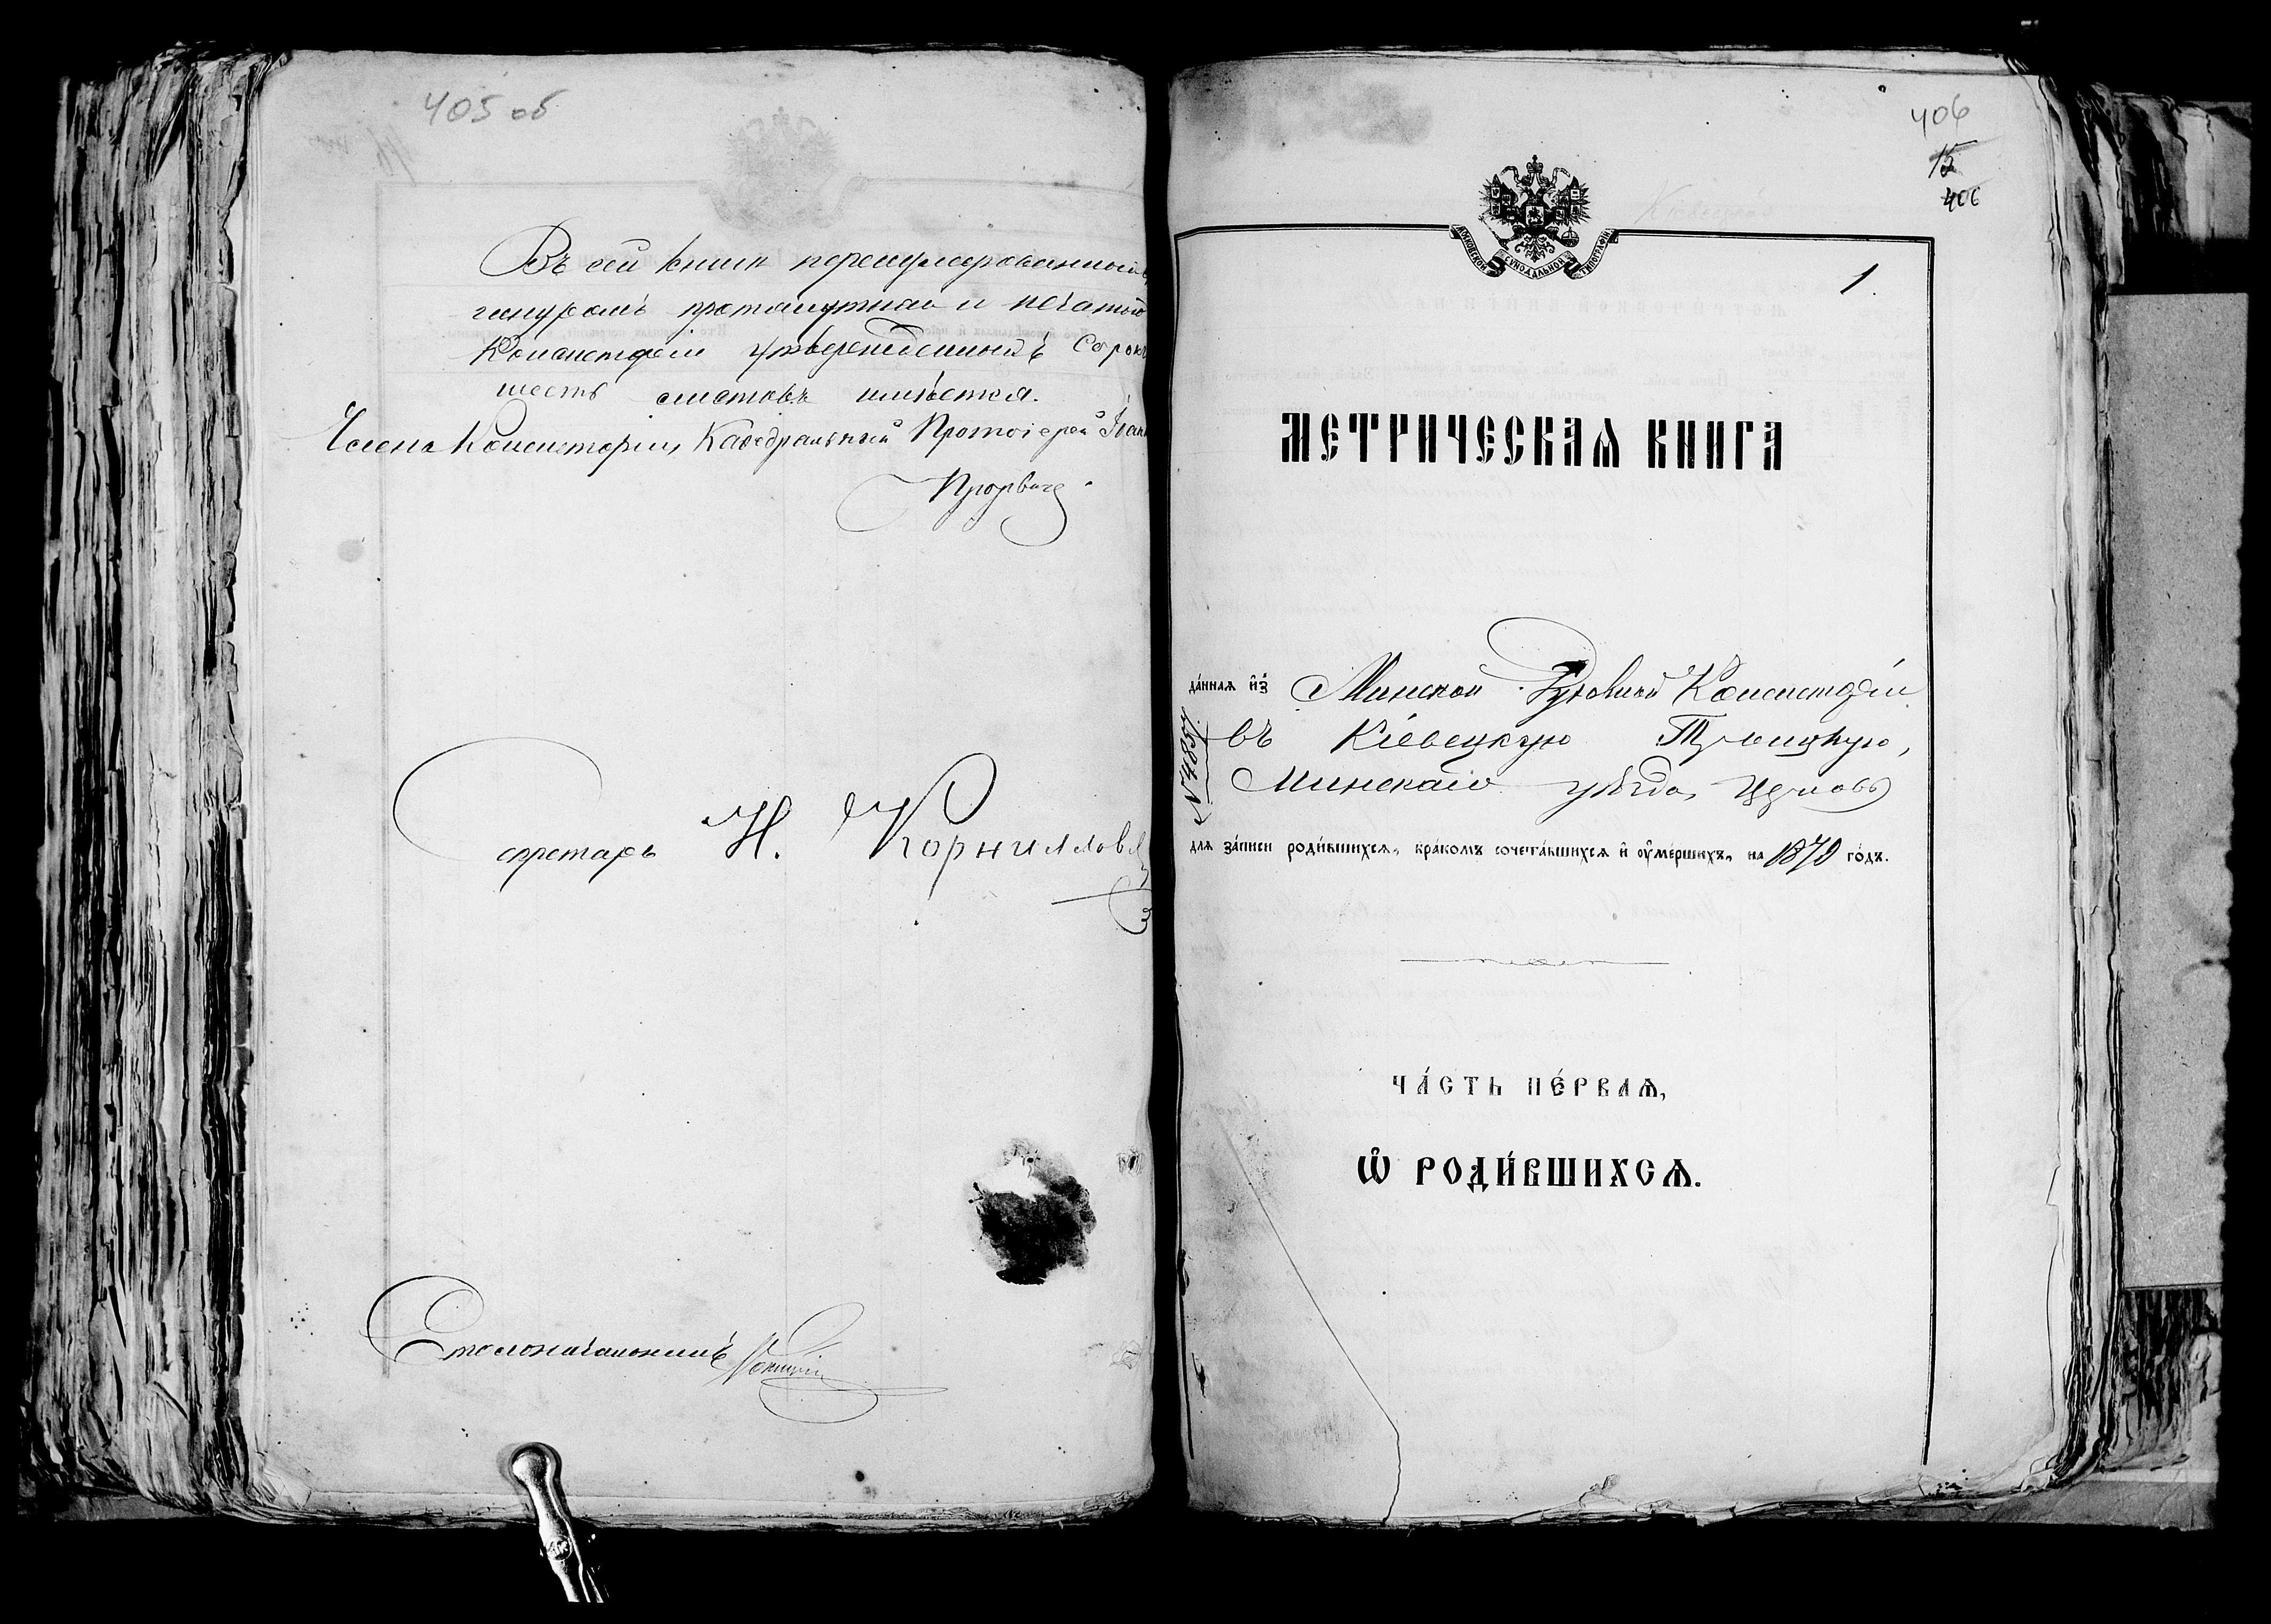 405 об
Въ сей книгѣ перенумерованный
шнуромъ протянутный и печатью
Консисторіи утвержденныхъ Сорокъ
шесть листовъ имѣется.
Членъ Консисторіи, Каѳедральный Протоіерей Іоаннъ
Секретарь Н. Корнилович
Столоначальникъ
406
15
406
МОСКОВСКОЙ СѴНОДАЛЬНОЙ ТИПОГРАФІИ
1.
МЕТРИЧЕСКАѦ КНИГА
да́ннаѧ и҆з̾ Минской Духовной Консисторіи
въ Кіевецкую Троицкую,
Минскаго уѣзда, церковь
№ 4857
длѧ за́писи роди́вшихсѧ, бра́комъ сочета́вшихсѧ и҆ ᲂу҆ме́ршихъ, на 1870 го́дъ.
ЧА́СТЬ ПЕ́РВАѦ,
Ѽ РОДИ́ВШИХСѦ.